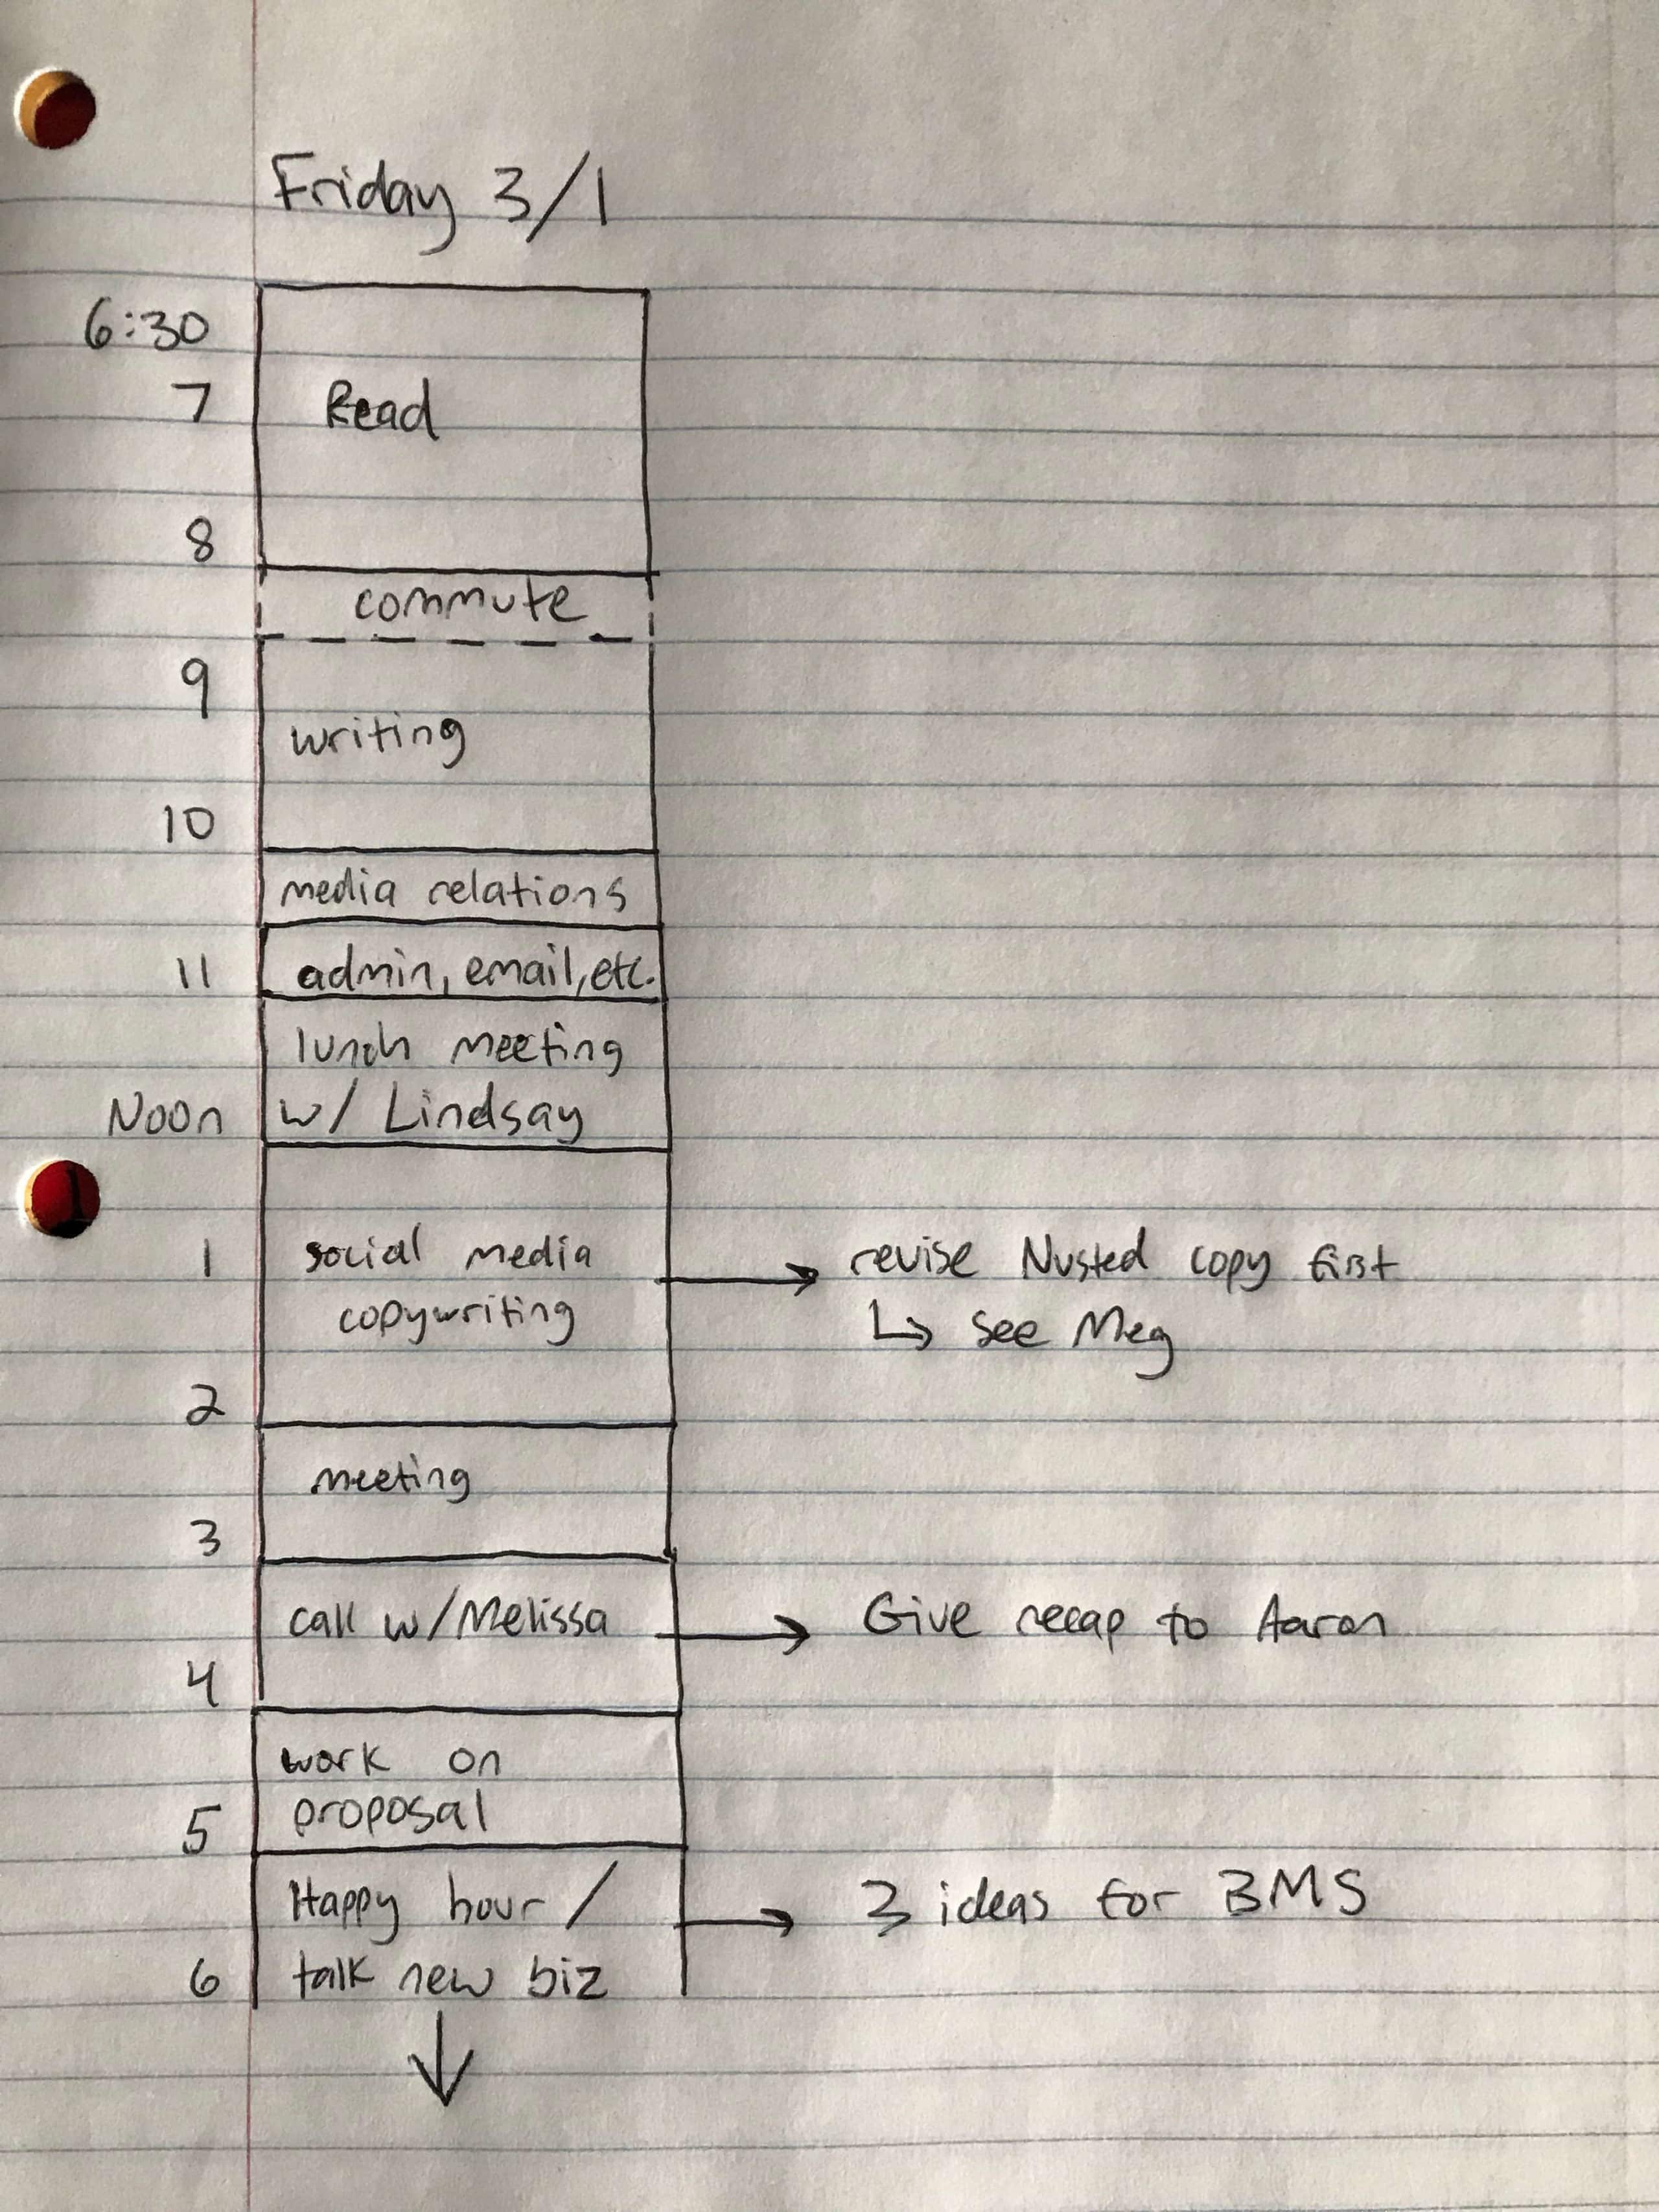 Friday 3/1
6:30
7 Read
8
commute
9
writing
10
media relations
11 admin, email, etc.
lunch meeting
Noon w/ Lindsay
1 social media → revise Nusted copy first
copywriting ↳ see Meg
2
meeting
3
call w/Melissa → Give recap to Aaron
4
work on
5 proposal
Happy hour / → 3 ideas for BMS
6 talk new biz
↓